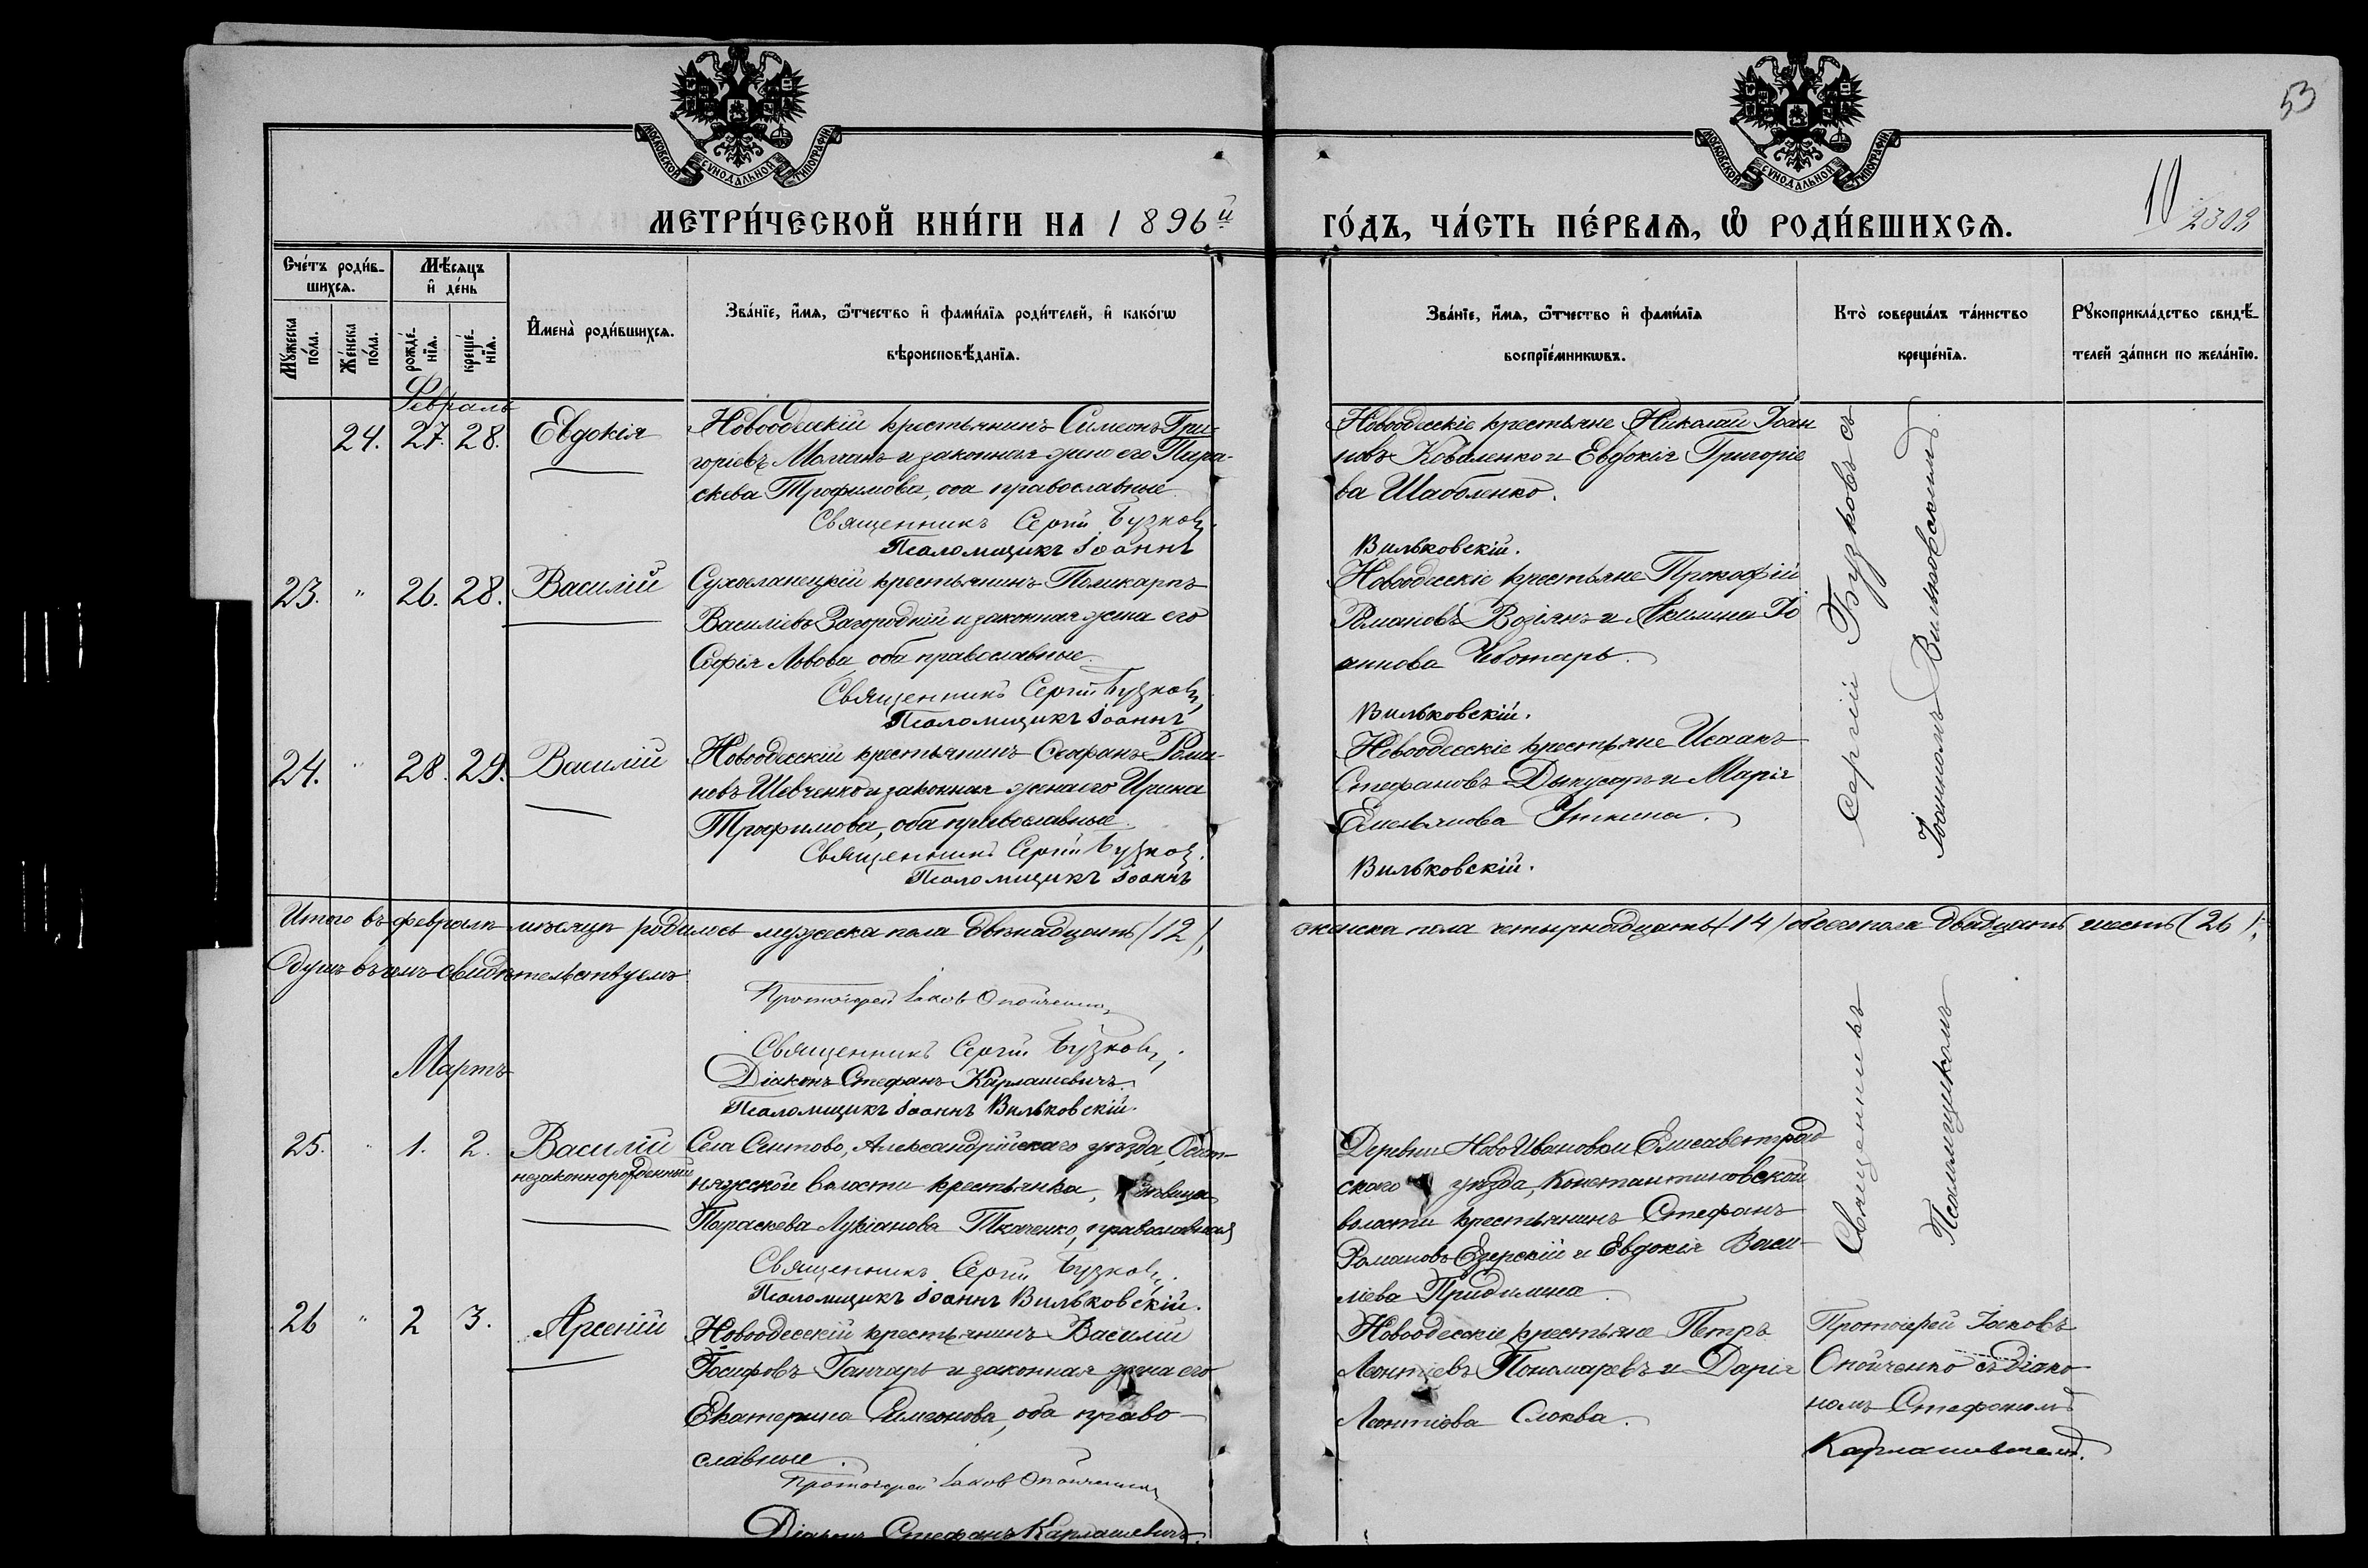 53
МОСКОВСКОЙ СѴНОДАЛЬНОЙ ТИПОГРАФІИ
МОСКОВСКОЙ СѴНОДАЛЬНОЙ ТИПОГРАФІИ
МЕТРИ́ЧЕСКОЙ КНИ́ГИ НА 1896й ГО́ДЪ, ЧА́СТЬ ПЕ́РВАѦ, Ѡ РОДИ́ВШИХСѦ.
10
2303
Сче́тъ роди́в-
шихсѧ.
Мѣ́сѧцъ
и де́нь
Мꙋ́жеска
по́ла.
Же́нска
по́ла.
рожде́-
нїѧ.
креще́-
нїѧ.
Имена̀ роди́вшихсѧ.
Зва́нїе, и́мѧ, ѻ́тчество и фами́лїѧ роди́телей, и како́гѡ
вѣроисповѣ́данїѧ.
Зва́нїе, и́мѧ, ѻ́тчество и фами́лїѧ
воспрїе́мникѡвъ.
Кто̀ соверша́лъ та́инство
креще́нїѧ.
Рꙋкоприкла́дство свидѣ́-
телей за́писи по жела́нїю.
Февраль
24. 27. 28. Евдокія
Новоодесскій крестьянинъ Симеонъ Гри-
горіевъ Молчанъ и законная жена его Пара-
скева Трофимова, оба православные
Священникъ Сергій Бузковъ.
Псаломщикъ Іоаннъ
Новоодесскіе крестьяне Николай Іоан
новъ Коваленко и Евдокія Григоріе
ва Шаболенко.
Вильковскій.
23. " 26. 28. Василій
Сухоеланецкій крестьянинъ Поликарпъ
Василіевъ Загородній и законная жена его
Софія Львова, оба православные.
Священникъ Сергій Бузковъ,
Псаломщикъ Іоаннъ
Новоодесскіе крестьяне Прокофій
Романовъ Возіянъ и Акилина Іо
аннова Чеботарь.
Вильковскій.
24. " 28. 29. Василій
Новоодесскій крестьянинъ Стефанъ Рома-
новъ Шевченко и законная жена его Ирина
Трофимова, оба православные.
Священникъ Сергій Бузковъ.
Псаломщикъ Іоаннъ
Новоодесскіе крестьяне Исаакъ
Стефановъ Дыкусаръ и Марія
Емельянова Уткина.
Вильковскій.
Священникъ Сергій Бузковъ съ
Псаломщикомъ Іоанномъ Вильковскимъ.
Итого въ февралѣ мѣсяцѣ родилось мужеска пола двѣнадцать (12), женска пола четырнадцать (14) обоего пола двадцать шесть (26),
душъ въ чемъ свидѣтельствуемъ
Протоіерей Іаковъ Опойченко
Священникъ Сергій Бузковъ,
Діаконъ Стефанъ Карлашевичъ.
Псаломщикъ Іоаннъ Вильковскій.
Мартъ
25. " 1. 2. Василій
незаконнорожденный
Села Сентово, Александрійскаго уѣзда, Осит-
няжской волости крестьянка, дѣвица
Параскева Лукіанова Ткаченко, православная
Священникъ Сергій Бузковъ.
Псаломщикъ Іоаннъ Вильковскій.
Деревни НовоИвановки Елисаветград
скаго уѣзда, Константиновской
волости крестьянинъ Стефанъ
Романовъ Езерскій и Евдокія Васи-
ліева
26 " 2 3. Арсеній
Новоодесскій крестьянинъ Василій
Іосифовъ Ганчаръ и законная жена его
Екатерина Симеонова, оба право-
славные.
Протоіерей Іаковъ Опойченко
Діаконъ Стефанъ Карлашевичъ.
Новоодесскіе крестьяне Петръ
Леонтіевъ Пономаревъ и Дарія
Леонтіева Слюква.
Протоіерей Іаковъ
Опойченко съ діако
номъ Стефаномъ
Карлашевичемъ.